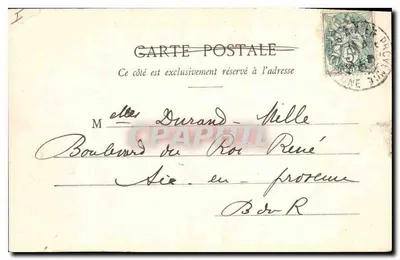 I
CARTE POSTALE
Ce côté est exclusivement réservé à l'adresse
Melles Durand-Mille
Boulevard du Roi René
Aix-en-provence
B du R